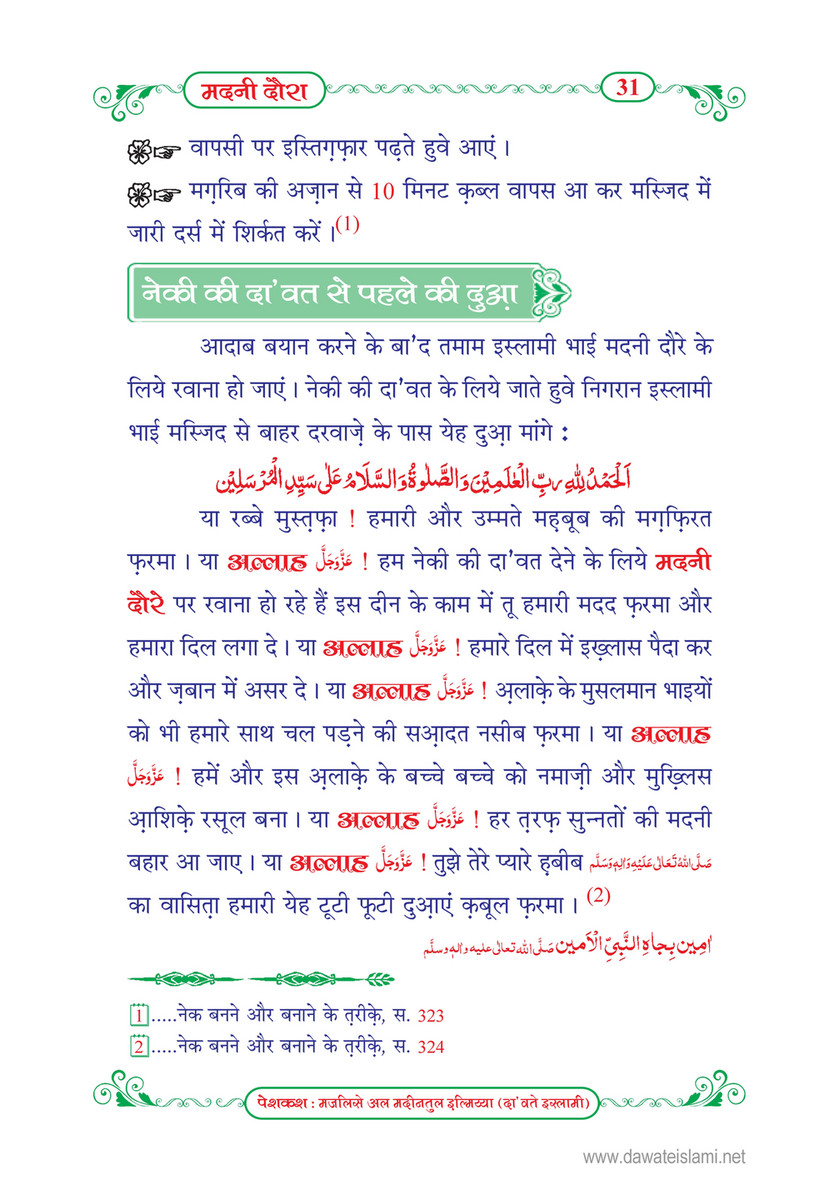 मदनी दौरा
31
वापसी पर इस्तिग़्फ़ार पढ़ते हुवे आएं ।
मग़रिब की अज़ान से 10 मिनट क़ब्ल वापस आ कर मस्जिद में
जारी दर्स में शिर्कत करें ।(1)
नेकी की दा'वत से पहले की दुआ़
आदाब बयान करने के बा'द तमाम इस्लामी भाई मदनी दौरे के
लिये रवाना हो जाएं । नेकी की दा'वत के लिये जाते हुवे निगरान इस्लामी
भाई मस्जिद से बाहर दरवाज़े के पास येह दुआ़ मांगे :
اَلْحَمْدُ لِلّٰهِ رَبِّ الْعٰلَمِيْنَ وَالصَّلٰوةُ وَالسَّلَامُ عَلٰى سَيِّدِ الْمُرْسَلِيْن
या रब्बे मुस्त़फ़ा ! हमारी और उम्मते मह़बूब की मग़्फ़िरत
फ़रमा । या अल्लाह عَزَّوَجَلَّ ! हम नेकी की दा'वत देने के लिये मदनी
दौरे पर रवाना हो रहे हैं इस दीन के काम में तू हमारी मदद फ़रमा और
हमारा दिल लगा दे । या अल्लाह عَزَّوَجَلَّ ! हमारे दिल में इख़्लास पैदा कर
और ज़बान में असर दे । या अल्लाह عَزَّوَجَلَّ ! अ़लाक़े के मुसलमान भाइयों
को भी हमारे साथ चल पड़ने की सआ़दत नसीब फ़रमा । या अल्लाह
عَزَّوَجَلَّ ! हमें और इस अ़लाक़े के बच्चे बच्चे को नमाज़ी और मुख़्लिस
आ़शिक़े रसूल बना । या अल्लाह عَزَّوَجَلَّ ! हर त़रफ़ सुन्नतों की मदनी
बहार आ जाए । या अल्लाह عَزَّوَجَلَّ ! तुझे तेरे प्यारे ह़बीब صَلَّى اللهُ تَعَالٰى عَلَيْهِ وَاٰلِهٖ وَسَلَّم
का वासित़ा हमारी येह टूटी फूटी दुआ़एं क़बूल फ़रमा । (2)
اٰمِين بِجَاهِ النَّبِيِّ الْاَمين صَلَّى الله تعالٰى عليه واٰلهٖ وسلَّم
1.....नेक बनने और बनाने के त़रीक़े, स. 323
2.....नेक बनने और बनाने के त़रीक़े, स. 324
पेशकश : मजलिसे अल मदीनतुल इल्मिय्या (दा'वते इस्लामी)
www.dawateislami.net